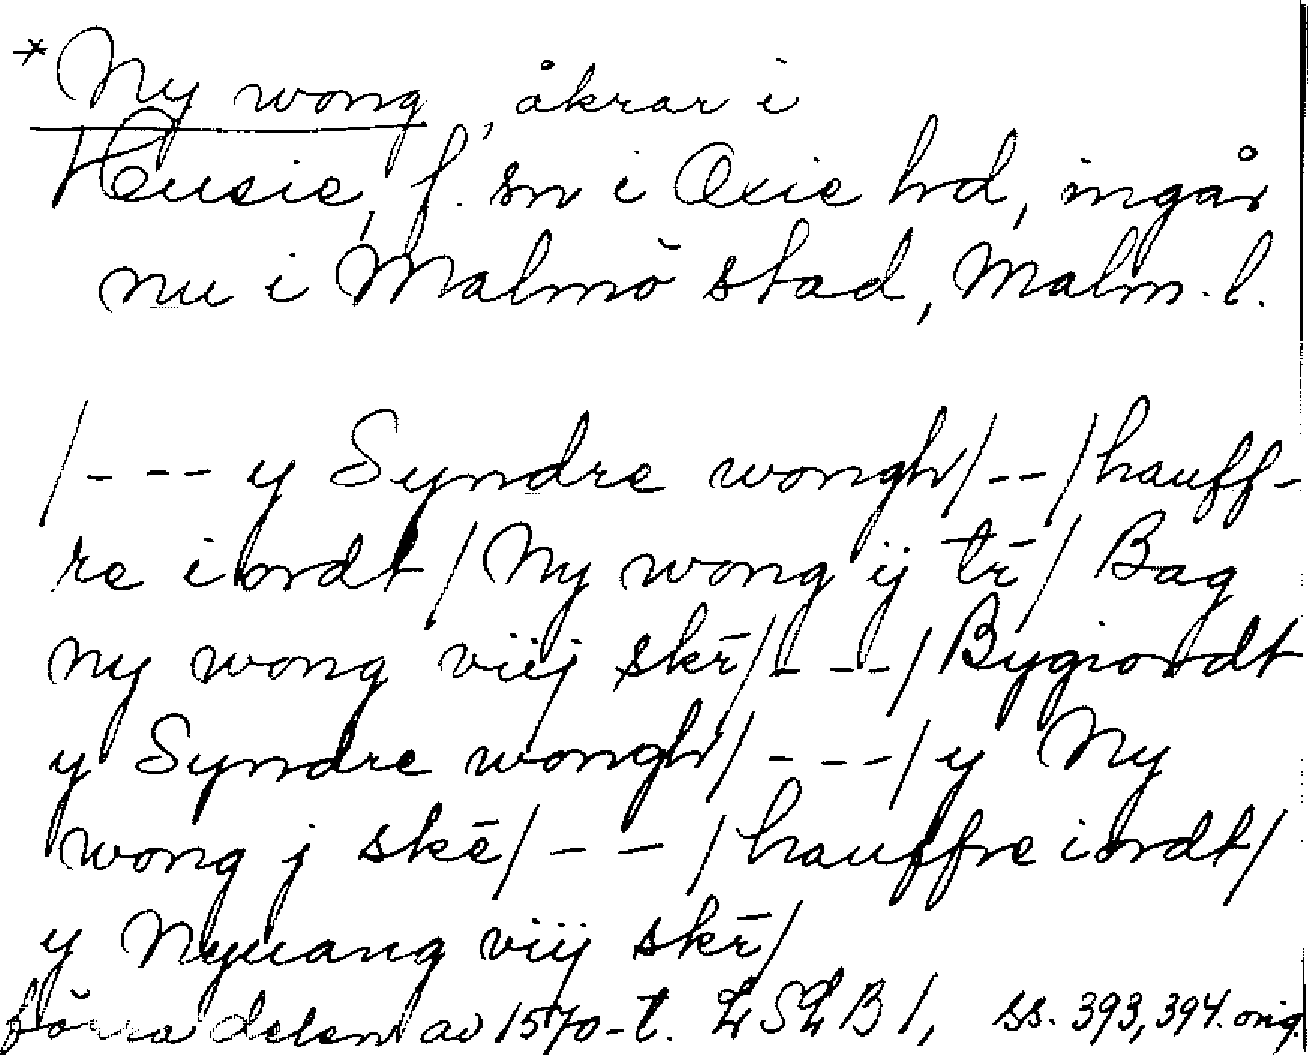 * Ny wong, åkrar i
Husie, f. sn i Oxie hd, ingår
nu i Malmö stad, Malm. l.
/--- y Syndre wongh/--/hauff-
re iordt/Ny wong ij tr̄/ Bag
ny wong viij skr̄/---/Bygiordt
y Syndre wongh/---/y Ny
wong j skē/--/hauffre iordt/
y Nyuang viij skr̄/
förra delen av 1570-t. LSLB 1, ss. 393, 394. orig.